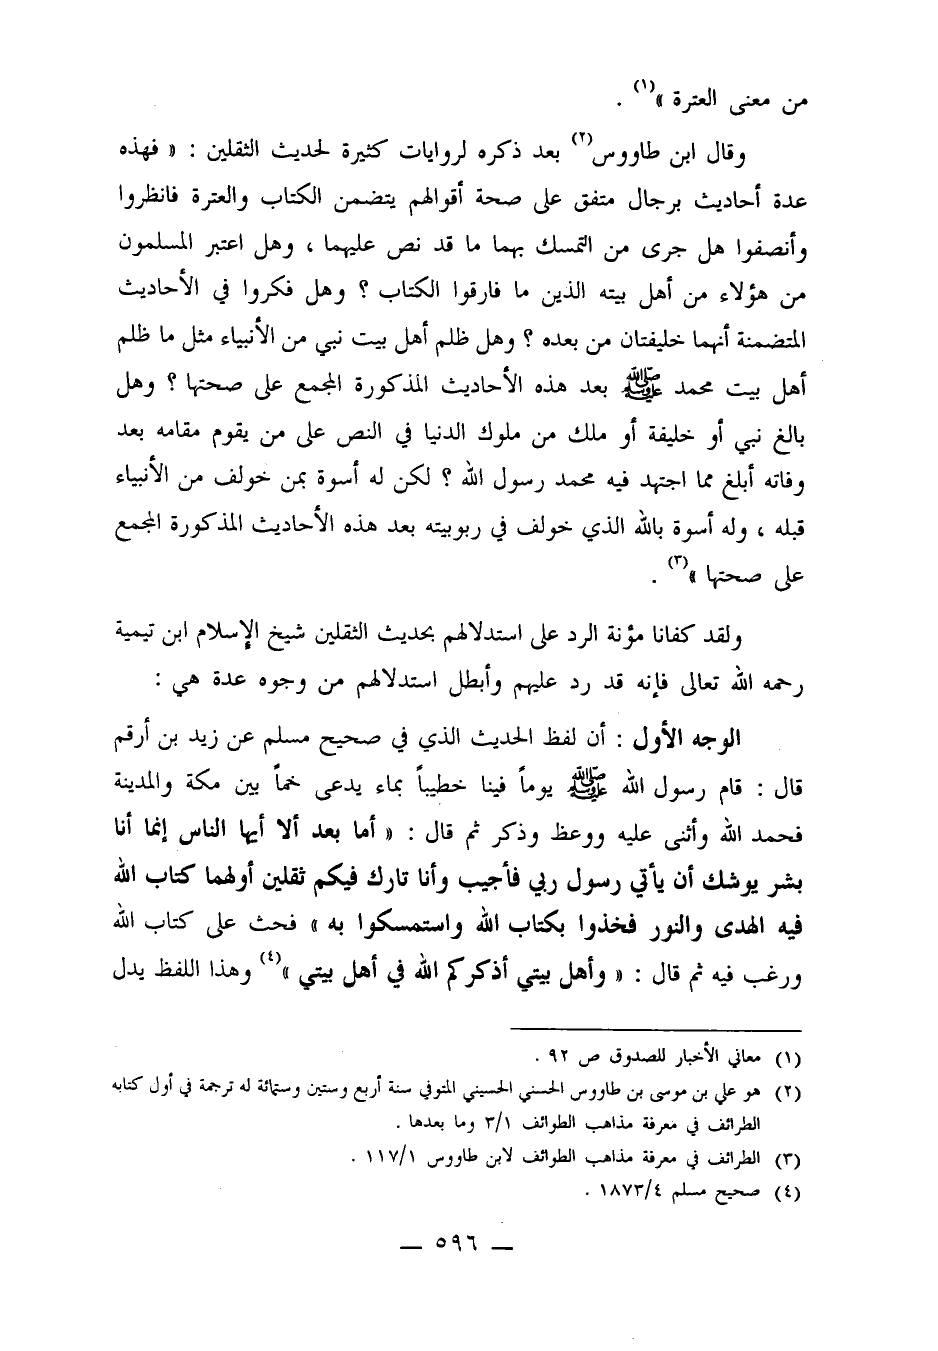 من معنى العترة »(١) .
وقال ابن طاووس(٢) بعد ذكره لروايات كثيرة لحديث الثقلين : « فهذه
عدة أحاديث برجال متفق على صحة أقوالهم يتضمن الكتاب والعترة فانظروا
وأنصفوا هل جرى من التمسك بهما ما قد نص عليهما ، وهل اعتبر المسلمون
من هؤلاء من أهل بيته الذين ما فارقوا الكتاب ؟ وهل فكروا في الأحاديث
المتضمنة أنهما خليفتان من بعده ؟ وهل ظلم أهل بيت نبي من الأنبياء مثل ما ظلم
أهل بيت محمد ﷺ بعد هذه الأحاديث المذكورة المجمع على صحتها ؟ وهل
بالغ نبي أو خليفة أو ملك من ملوك الدنيا في النص على من يقوم مقامه بعد
وفاته أبلغ مما اجتهد فيه محمد رسول الله ؟ لكن له أسوة بمن خولف من الأنبياء
قبله ، وله أسوة بالله الذي خولف في ربوبيته بعد هذه الأحاديث المذكورة المجمع
على صحتها »(٣) .
ولقد كفانا مؤنة الرد على استدلالهم بحديث الثقلين شيخ الإسلام ابن تيمية
رحمه الله تعالى فإنه قد رد عليهم وأبطل استدلالهم من وجوه عدة هي :
الوجه الأول : أن لفظ الحديث الذي في صحيح مسلم عن زيد بن أرقم
قال : قام رسول الله ﷺ يوماً فينا خطيباً بماء يدعى خماً بين مكة والمدينة
فحمد الله وأثنى عليه ووعظ وذكر ثم قال : « أما بعد ألا أيها الناس إنما أنا
بشر يوشك أن يأتي رسول ربي فأجيب وأنا تارك فيكم ثقلين أولهما كتاب الله
فيه الهدى والنور فخذوا بكتاب الله واستمسكوا به » فحث على كتاب الله
ورغب فيه ثم قال : « وأهل بيتي أذكركم الله في أهل بيتي »(٤) وهذا اللفظ يدل
(١) معاني الأخبار للصدوق ص ٩٢ .
(٢) هو علي بن موسى بن طاووس الحسني الحسيني المتوفي سنة أربع وستين وستمائة له ترجمة في أول كتابه
الطرائف في معرفة مذاهب الطوائف ٣/١ وما بعدها .
(٣) الطرائف في معرفة مذاهب الطوائف لابن طاووس ١١٧/١ .
(٤) صحيح مسلم ١٨٧٣/٤ .
— ٥٩٦ —